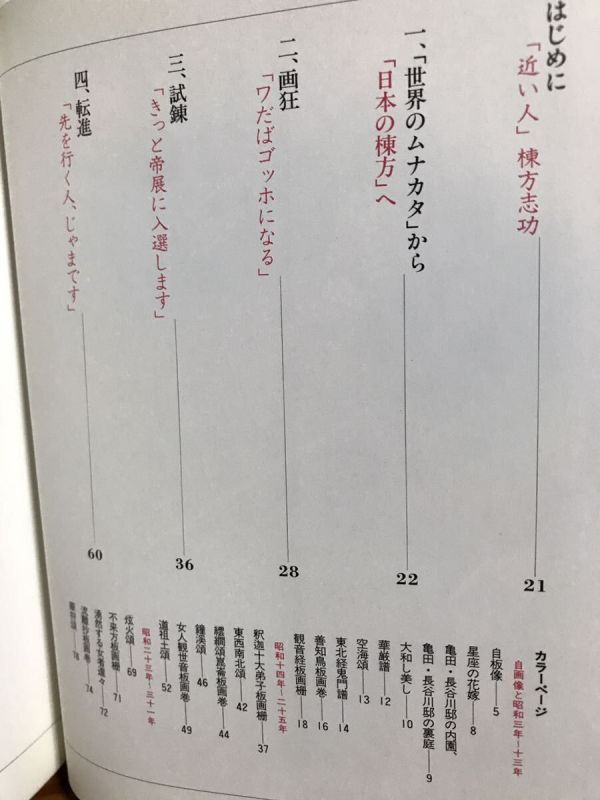 はじめに
「近い人」棟方志功
21
一、「世界のムナカタ」から
「日本の棟方」へ
22
二、画狂
「ワだばゴッホになる」
28
三、試錬
「きっと帝展に入選します」
36
四、転進
「先を行く人、じゃまです」
60
カラーページ
自画像と昭和三年〜十三年
自板像——5
星座の花嫁——8
亀田・長谷川邸の内園、
亀田・長谷川邸の裏庭——9
大和し美し——10
華厳譜——12
空海頌——13
東北経鬼門譜——14
善知鳥板画巻——16
観音経板画柵——18
昭和十四年〜二十五年
釈迦十大弟子板画柵——37
東西南北頌——42
襖綢頌崑崙板画巻——44
鐘溪頌——46
女人観世音板画巻——49
道祖土頌——52
昭和二十三年〜三十一年
炫火頌——69
不来方板画柵——71
湧然する女者達々——72
流離抄板画巻——74
78